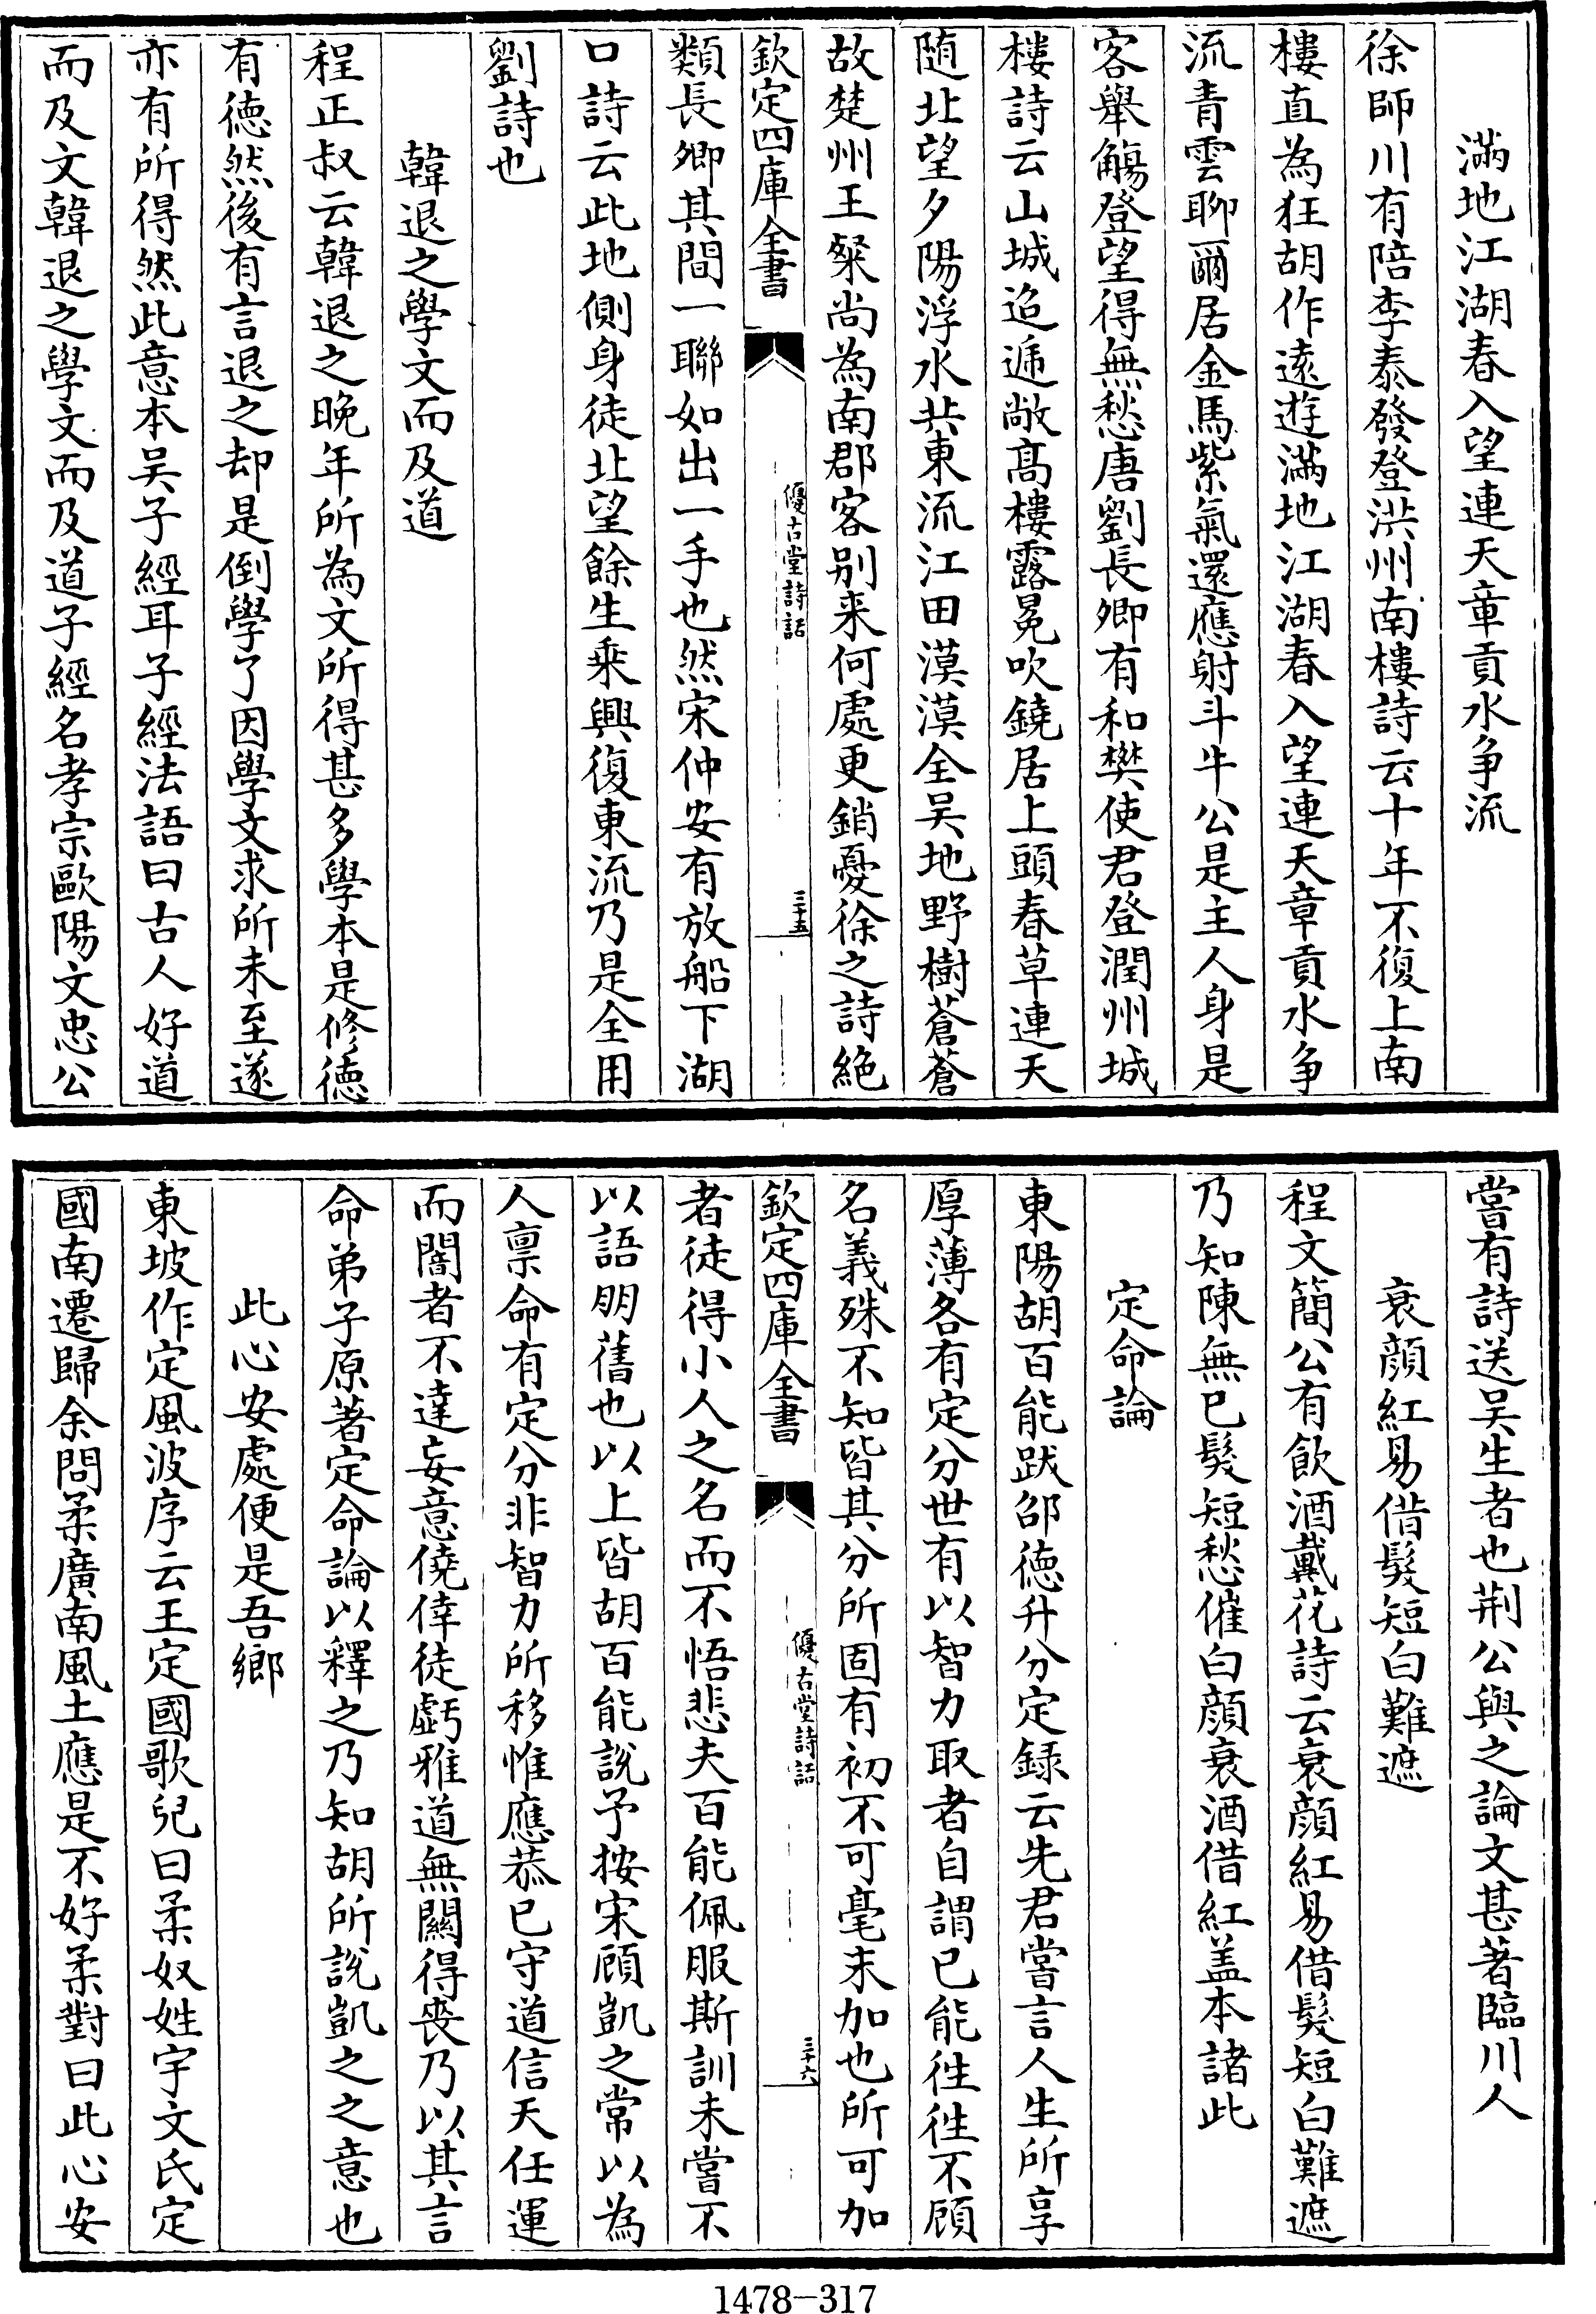 滿地江湖春入望連天章貢水争流
徐師川有陪李泰發登洪州南樓詩云十年不復上南
樓直為狂胡作逺遊滿地江湖春入望連天章貢水争
流青雲聊爾居金馬紫氣還應射斗牛公是主人身是
客舉觴登望得無愁唐劉長卿有和樊使君登潤州城
樓詩云山城迢遞敞髙樓露冕吹鐃居上頭春草連天
随北望夕陽浮水共東流江田漠漠全吴地野樹蒼蒼
故楚州王粲尚為南郡客别来何處更銷憂徐之詩絶
欽定四庫全書
優古堂詩話
三十五
類長卿其間一聯如出一手也然宋仲安有放船下湖
口詩云此地側身徒北望餘生乗興復東流乃是全用
劉詩也
韓退之學文而及道
程正叔云韓退之晚年所為文所得甚多學本是修徳
有徳然後有言退之却是倒學了因學文求所未至遂
亦有所得然此意本吴子經耳子經法語曰古人好道
而及文韓退之學文而及道子經名孝宗歐陽文忠公
嘗有詩送吴生者也荆公與之論文甚著臨川人
衰顔紅易借髮短白難遮
程文簡公有飲酒戴花詩云衰顔紅易借髮短白難遮
乃知陳無已髮短愁催白顔衰酒借紅盖本諸此
定命論
東陽胡百能跋邵徳升分定録云先君嘗言人生所享
厚薄各有定分世有以智力取者自謂已能徃徃不顧
名義殊不知皆其分所固有初不可毫末加也所可加
欽定四庫全書
優古堂詩話
三十六
者徒得小人之名而不悟悲夫百能佩服斯訓未嘗不
以語朋舊也以上皆胡百能說予按宋顧凱之常以為
人禀命有定分非智力所移惟應恭已守道信天任運
而闇者不達妄意僥倖徒虧雅道無闗得喪乃以其言
命弟子原著定命論以釋之乃知胡所說凱之之意也
此心安處便是吾鄉
東坡作定風波序云王定國歌兒曰柔奴姓宇文氏定
國南遷歸余問柔廣南風土應是不好柔對曰此心安
1478-317